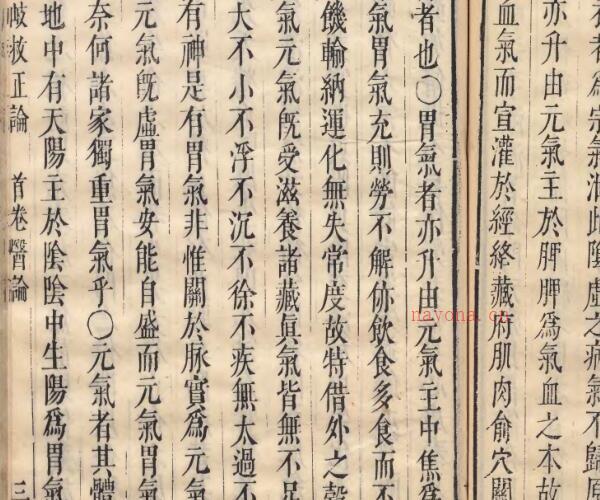 者爲宗氣滞此陰虛之病氣不歸原
亦升由元氣主於脾脾爲氣血之本故
血氣而宣灌於經絡藏府肌肉俞穴關
者也〇胃氣者亦升由元氣主中焦爲
氣胃氣充則勞不解㑊飲食多食而不
饑輸納運化無失常度故特借外之穀
氣元氣旣受滋養諸藏眞氣皆無不足
大不小不浮不沉不徐不疾無太過不
有神是有胃氣非惟關於脉實爲元氣
元氣旣虛胃氣安能自盛而元氣胃氣
奈何諸家獨重胃氣乎〇元氣者其體
地中有天陽主於陰陰中生陽爲胃氣
岐救正論 首卷醫論 三
nayona.cn